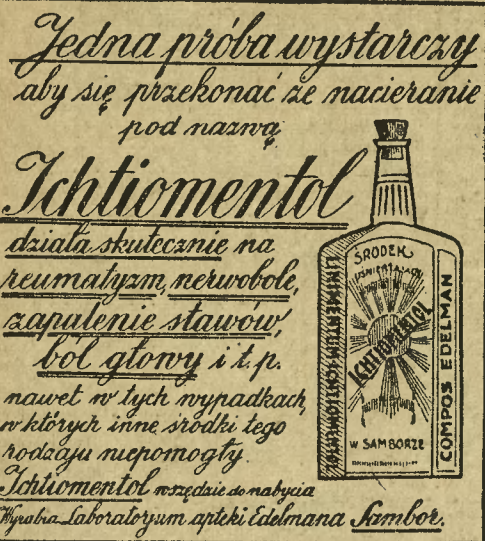 Jedna próba wystarczy
aby się przekonać że nacieranie
pod nazwą
Ichtiomentol
działa skutecznie na
reumatyzm, nerwobole,
zapalenie stawów,
ból głowy i t. p.
nawet w tych wypadkach,
w których inne środki tego
rodzaju niepomogły.
Ichtiomentol wszędzie do nabycia
Wyrabia Laboratoryum apteki Edelmana Sambor.
ŚRODEK
UŚMIERZAJĄCY
ICHTIOMENTOL
W SAMBORZE
LINIMENTUM ICHTIOMENTOL
COMPOS EDELMAN